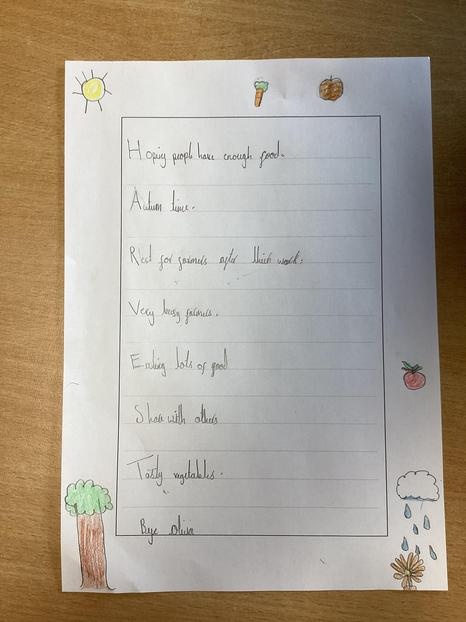 Hoping peopl have enough food.
Autum time.
Rest for farmers after their work.
Very busy farmers.
Eating lots of food
Share with others
Tasty vegetables.
Bye Olivia